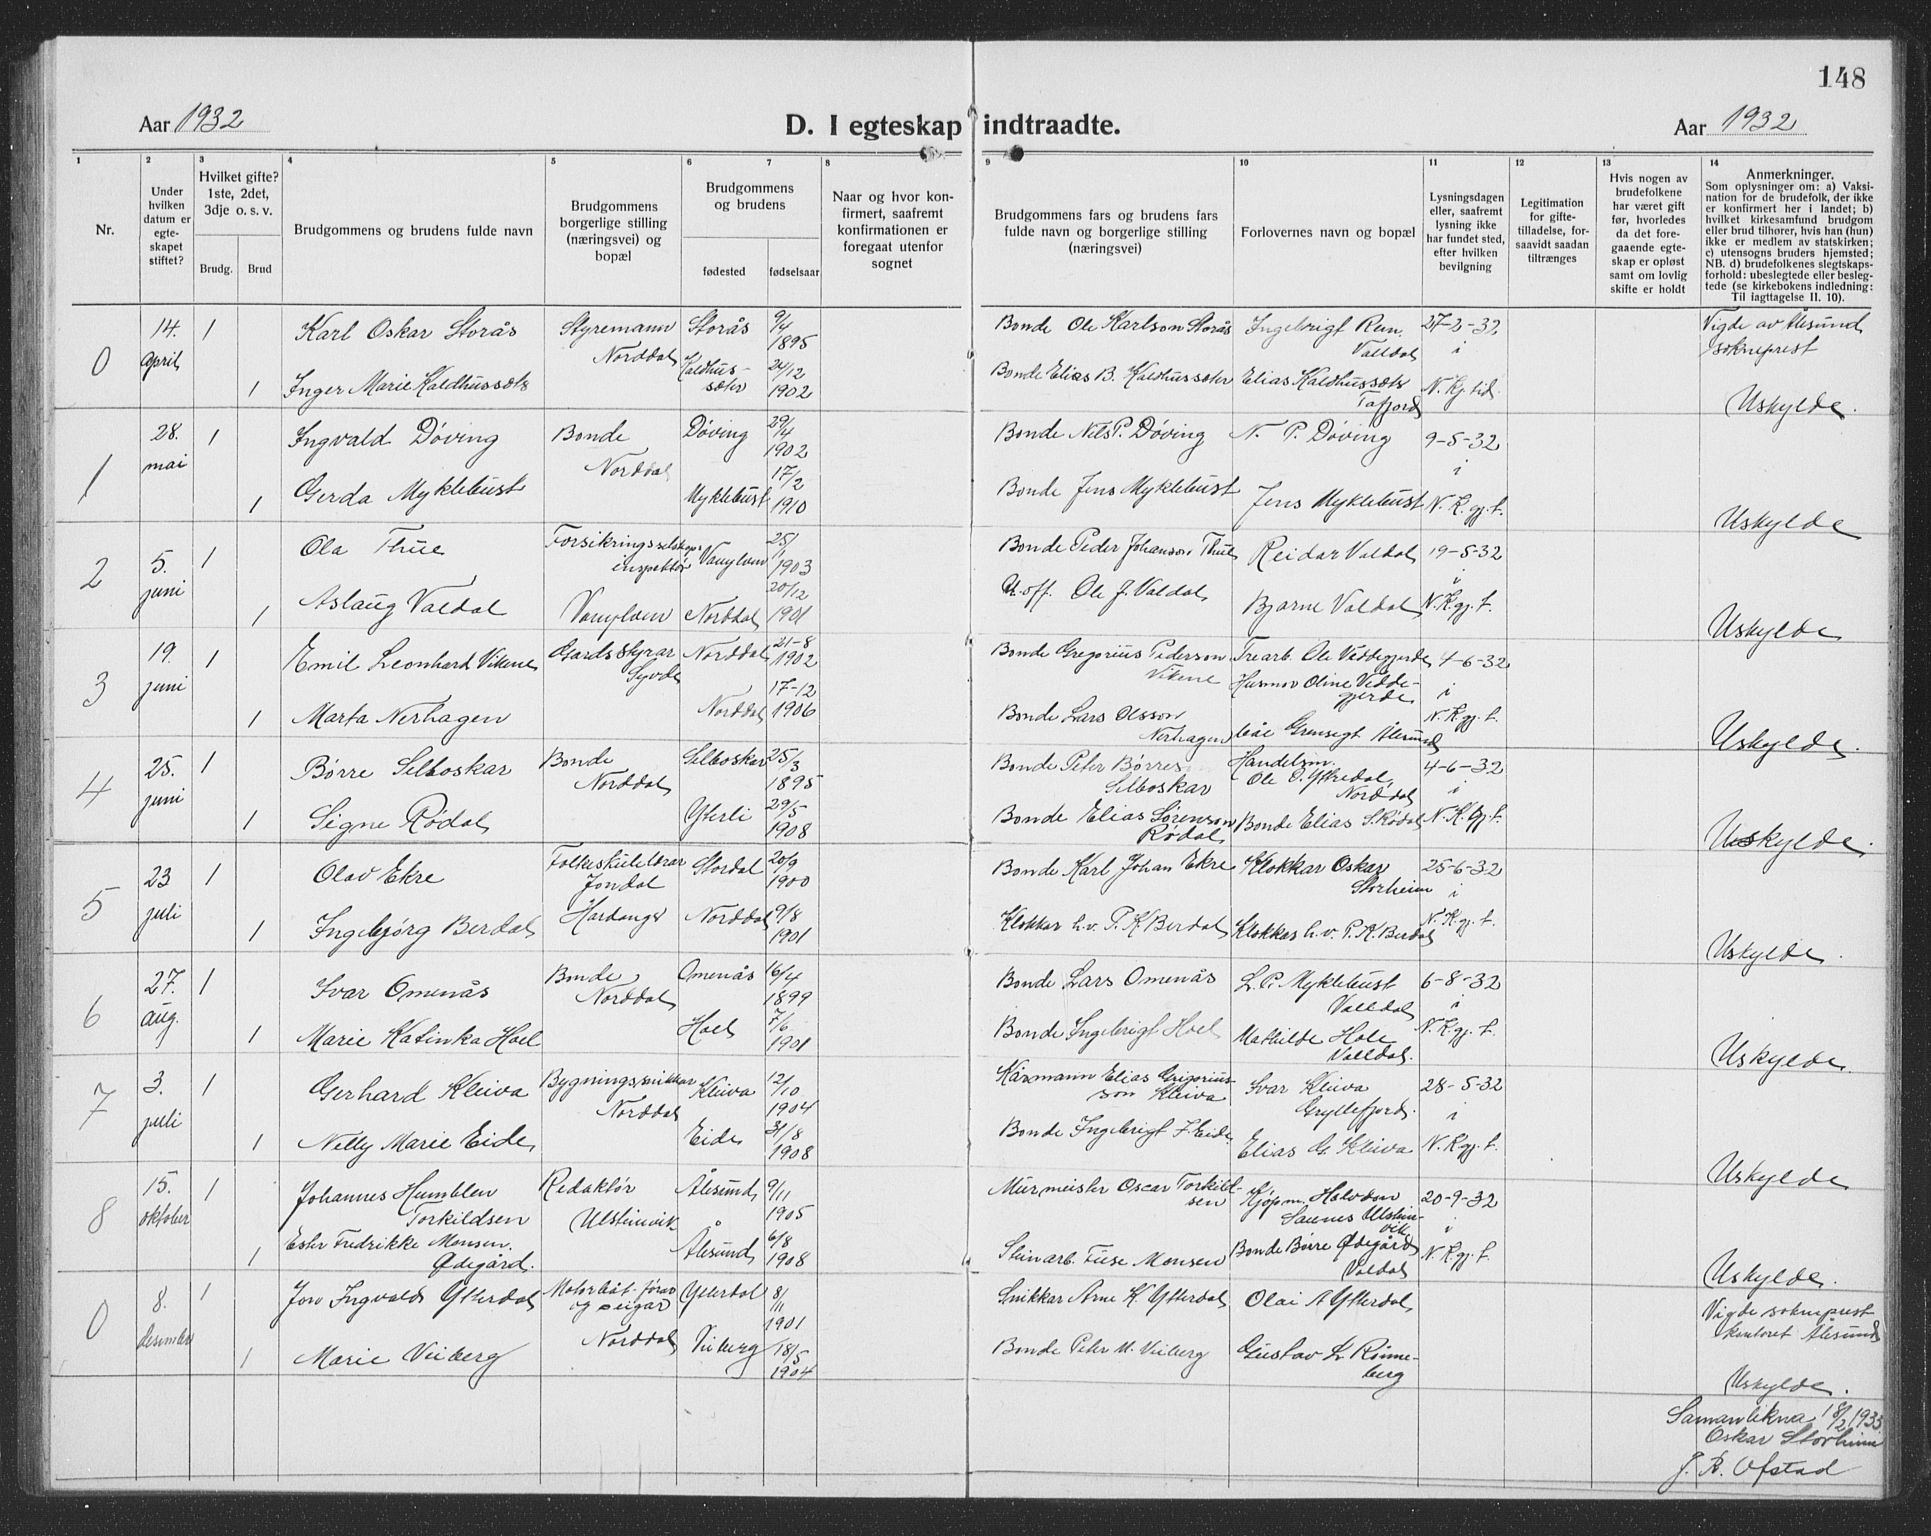 148
Aar 1932
D. I egteskap indtraadte.
Aar 1932
1 2 3 4 5 6 7 8 9 10 11 12 13 14
Nr.
Under hvilken datum er egte-skapet stiftet?
Hvilket gifte? 1ste, 2det, 3dje o. s. v.
Brudg. Brud
Brudgommens og brudens fulde navn
Brudgommens borgerlige stilling (næringsvei) og bopæl
Brudgommens og brudens
fødested fødselsaar
Naar og hvor kon-firmert, saafremt konfirmationen er foregaat utenfor sognet
Brudgommens fars og brudens fars fulde navn og borgerlige stilling (næringsvei)
Forlovernes navn og bopæl
Lysningsdagen eller, saafremt lysning ikke har fundet sted, efter hvilken bevilgning
Legitimation for gifte-tilladelse, for-saavidt saadan tiltrænges
Hvis nogen av brudefolkene har været gift før, hvorledes da det fore-gaaende egte-skap er opløst samt om lovlig skifte er holdt
Anmerkninger.
Som oplysninger om: a) Vaksi-nation for de brudefolk, der ikke er konfirmert her i landet; b) hvilket kirkesamfund brudgom eller brud tilhører, hvis han (hun) ikke er medlem av statskirken; c) utensogns bruders hjemsted; NB. d) brudefolkenes slegtskaps-forhold: ubeslegtede eller besleg-tede (se kirkebokens indledning: Til iagttagelse II. 10).
0 14. april 1 Karl Oskar Storås Styremann Norddal Storås 9/4 1895 Bonde Ole Karlson Storås Ingebrigt Rem, Valldal 27-2-32 i Vigde av Ålesund sokneprest
1 Inger Marie Kaldhussætr Kaldhus-sætr 24/12 1902 Bonde Elias B. Kaldhussetr Elias Kaldhussetr Tafjord N. Kg. tid. Uskylde.
1 28. mai 1 Ingvald Døving Bonde Norddal Døving 29/4 1902 Bonde Nels P. Døving N. P. Døving 9-5-32 i
1 Gerda Myklebust Myklebust 17/2 1910 Bonde Jens Myklebust Jens Myklebust N. K. gj. t. Uskylde
2 5. juni 1 Ola Thue Forsikringsselskaps inspektør Vanylven 25/1 1903 Bonde Peder Johanson Thue Reidar Valdal 19-5-32 i
1 Aslaug Valdal Vanylven Norddal 20/12 1901 U.off. Ole J. Valdal Bjarne Valdal N. K. gj. t. Uskylde
3 19. juni 1 Emil Leonhard Vikene Gardsstyrar Syvde Norddal 21-8 1902 Bonde Gregorius Pederson Vikene Trearb. Ole Viddegjerde Husmor Oline Vidde-gjerde 4-6-32 i
1 Marta Nerhagen Norddal 17-12 1906 Bonde Lars Olsson Nerhagen Ålesund N. K. gj. t. Uskylde.
4 25. juni 1 Børre Selboskar Bonde Norddal Selboskar 25/3 1895 Bonde Peter Børres Selboskar Handelsm. Ole O. Ytredal, Norddal 4-6-32 i
1 Signe Rødal Yterli 29/5 1908 Bonde Elias Sørenson Rødal Bonde Elias S. Rødal N. K. gj. t. Uskylde.
5 23 juli 1 Olav Ekre Folkeskulelærar Jondal Hardanger Stordal 20/9 1900 Bonde Karl Johan Ekre Klokkar Oskar Storheim 25-6-32 i
1 Ingebjørg Berdal Norddal 9/8 1901 Klokkar h.v. P. K Berdal Klokkar h.v. P. K. Berdal N. K. gj. t. Uskylde.
6 27. aug. 1 Ivar Omenås Bonde, Norddal Omenås 16/4 1899 Bonde Lars Omenås L. P. Myklebust Valldal 6-8-32 i
1 Marie Katinka Hoel Hoel 7/6 1901 Bonde Ingebrigt Hoel Mathilde Hole Valldal. N. K. gj. t. Uskylde.
7 3. juli 1 Gerhard Kleiva Bygningssnikkar Norddal Kleiva 12/10 1904 Kårmann Elias Grigorius-son Kleiva Ivar Kleiva Gryllefjord. 28-5-32 i
1 Nelly Marie Eide Eide 31/8 1908 Bonde Ingebrigt J. Eide Elias G. Kleiva N. K. gj. t. Uskylde
8 15. oktober 1 Johannes Humblen Torkildsen Redaktør Ulsteinvik Ålesund 9/11 1905 Murmeister Oscar Torkild-sen Kjøpm. Halvdan Saunes Ulstein-vik 20-9-32 i
1 Ester Fredrikke Monsen Ødegård. Ålesund 6/8 1908 Steinarb. Tuse Monsen Bonde Børre Ødegård Valdal N. K. gj. t. Uskylde.
0 8. desember 1 Jon Ingvald Ytterdal Motorbåt-førar og eigar Norddal Ytterdal 8/11 1901 Snikkar Arne K. Ytterdal Olai A Ytterdal Vigde sokneprest kontoret Ålesund
1 Marie Veiberg Veiberg 18/5 1904 Bonde Peter M. Veiberg Gustav L. Rønne-berg Uskylde.
Samanlikna 18/2 1933
Oskar Storheim
J. B. Ofstad